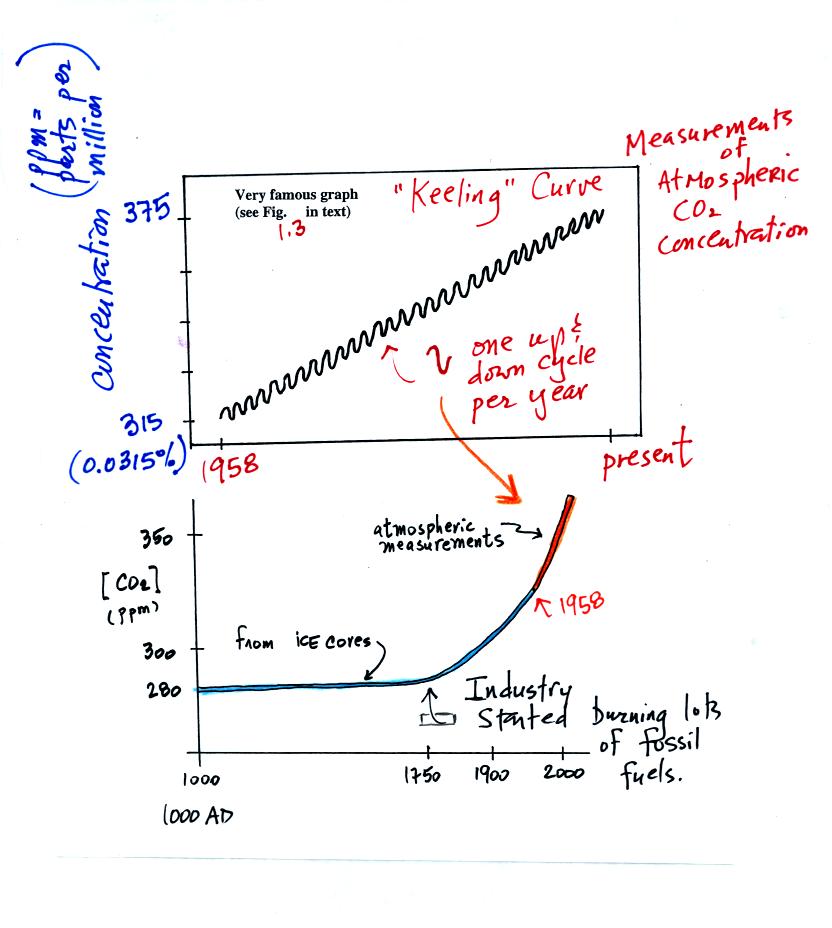 (ppm =
parts per
million)
concentration
Measurements
of
Atmospheric
CO2
concentration
Very famous graph
(see Fig. 1.3 in text)
"Keeling" Curve
375
315
(0.0315%)
one up &
down cycle
per year
1958
present
350
[CO2]
(ppm)
300
280
atmospheric
measurements
1958
from ICE cores
Industry
Started burning lots
of fossil
fuels.
1000
1750
1900
2000
1000 AD